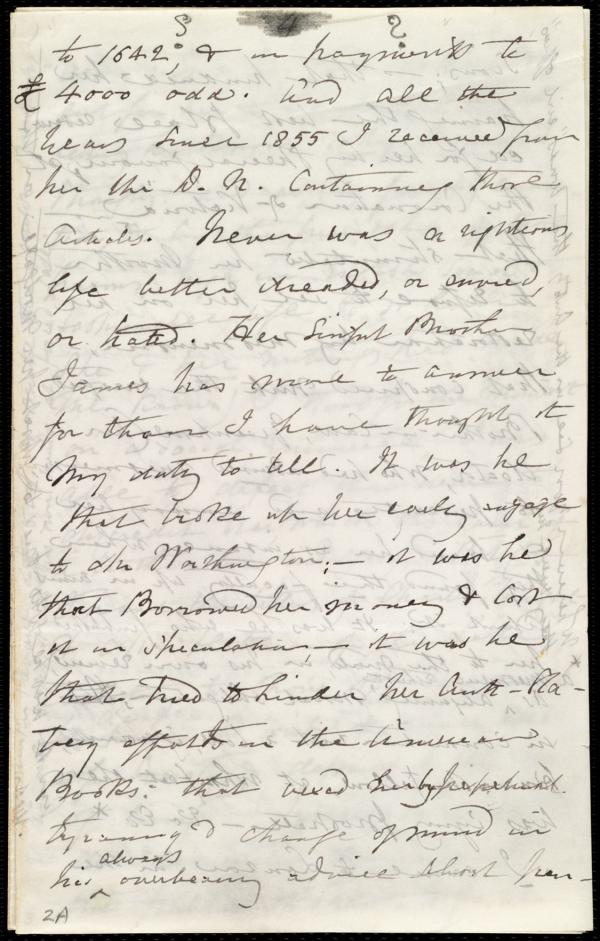 4
to 1642; & in payments to
£4000 odd. And all the
years since 1855 I received from
her the D. N. Containing those
Articles. Never was a righteous
life better dreaded, or envied,
or hated. Her sinful Brother
James has more to answer
for than I have thought it
my duty to tell. It was he
that broke up her early engage
to Mr Worthington; — it was he
that Borrowed her money & lost
it in speculation, — it was he
that tried to hinder her Anti-Sla-
very efforts in the American
Books: that vexed her by
tyranny & change of mind in
his always overbearing advice about her —
2A